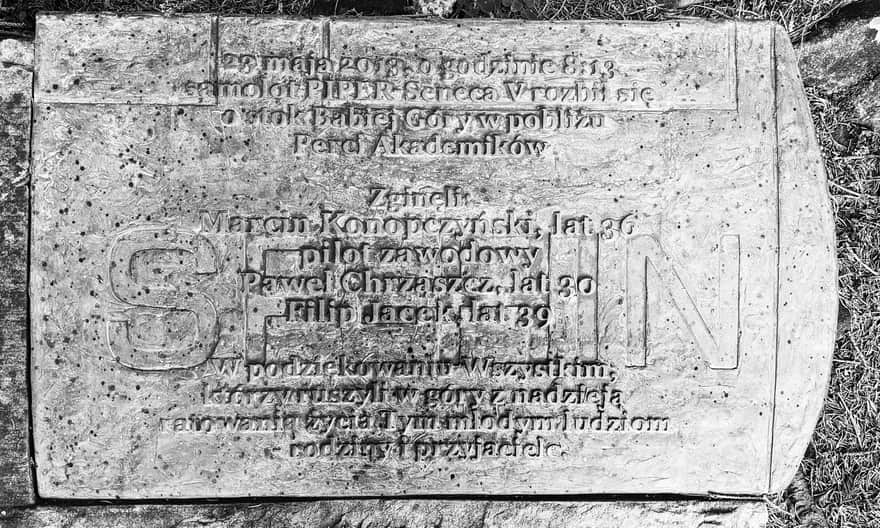 23 maja 2013 o godzinie 8:13
samolot PIPER Seneca V rozbił się
o stok Babiej Góry w pobliżu
Perci Akademików
Zginęli:
Marcin Konopczyński, lat 36
pilot zawodowy
Paweł Chrząszcz, lat 30
Filip Jacek, lat 39
W podziękowaniu Wszystkim,
którzy ruszyli w góry z nadzieją
ratowania życia Tym młodym ludziom
rodziny i przyjaciele.